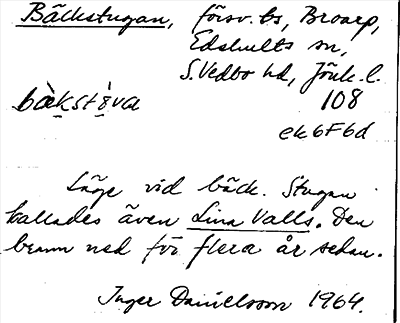 Bäckstugan, försv. ts, Broarp,
Edshults sn,
S. Vedbo hd, Jönk. l.
bæ̀kstò̤va 108
ek6F6d
Läge vid bäck. Stugan
kallades även Lina Valls. Den
brann ned för flera år sedan.
Inger Danielsson 1964.